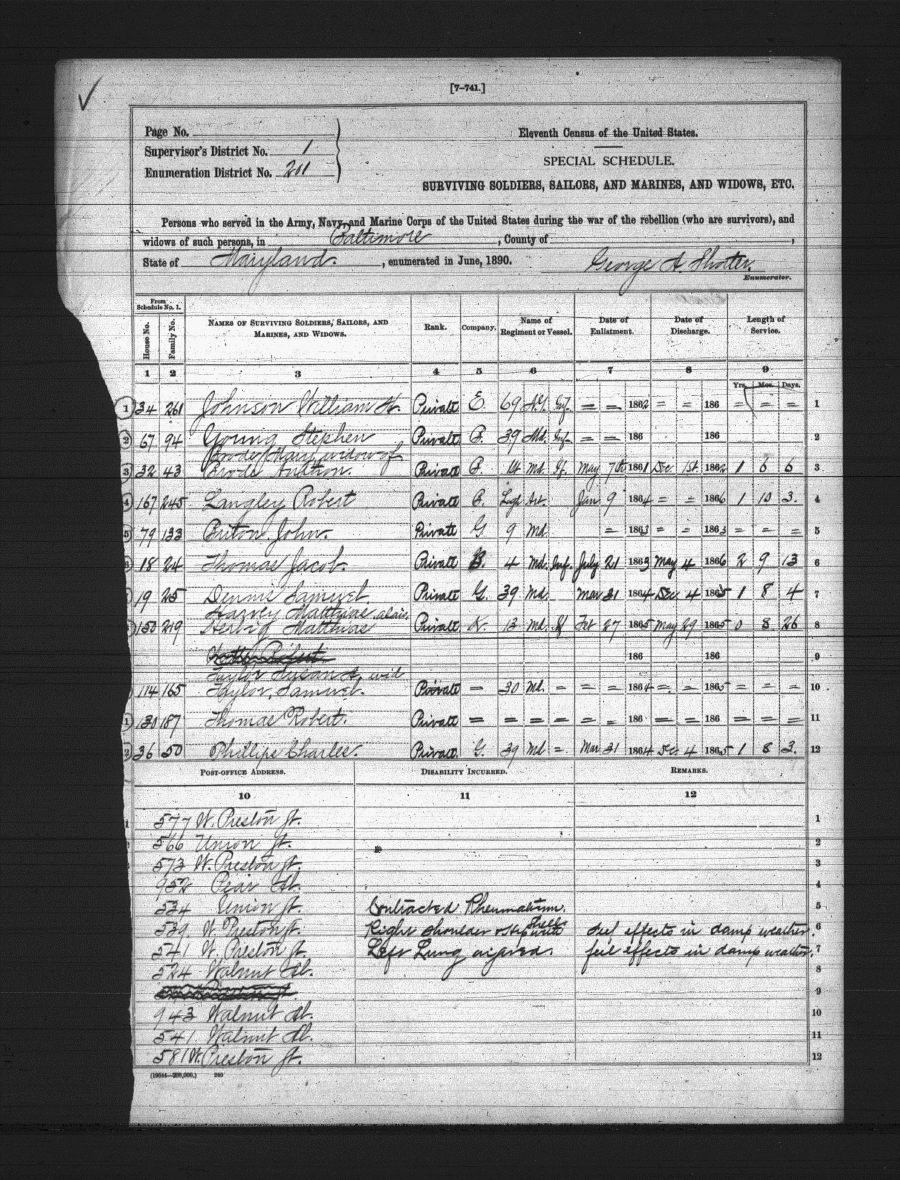 [7-741.]
Page No.
Supervisor's District No. 1
Enumeration District No. 201
Eleventh Census of the United States.
SPECIAL SCHEDULE.
SURVIVING SOLDIERS, SAILORS, AND MARINES, AND WIDOWS, ETC.
Persons who served in the Army, Navy, and Marine Corps of the United States during the war of the rebellion (who are survivors), and
widows of such persons, in Baltimore, County of ,
State of Maryland., enumerated in June, 1890. George A.
Enumerator.
From Schedule No. 1.
House No. Family No. NAMES OF SURVIVING SOLDIERS, SAILORS, AND MARINES, AND WIDOWS. Rank. Company. Name of Regiment or Vessel. Date of Enlistment. Date of Discharge. Length of Service.
1 2 3 4 5 6 7 8 9
Yrs. Mos. Days.
1 34 261 Johnson William H. Private E. 69 Inf. = = 1862 = = 186 = = = 1
2 67 94 Young Stephen Private 39 Md. Inf. = = 186 186 2
Mary widow of
3 32 43 Private Md. If. May 7th 1861 Dec 1st. 1862 1 6 6 3
4 167 245 Langley Robert Private Art. Jan 9 1864 = = 1866 1 10 3. 4
5 79 133 John. Private G 9 Md. = 1863 = = 1863 = = = 5
18 24 Thomas Jacob Private B. 4 Md. Inf. July 21 1863 May 4 1866 2 9 13 6
19 25 Dennis Samuel Private G. 39 Md. Mar 31 1864 Dec 4 1865 1 8 4 7
Harvey Matthias alais
150 219 Matthias Private 13 Md. If Feb 27 1865 May 29 1865 0 8 26 8
186 186 9
Taylor Susan A. wid
114 165 Taylor, Samuel. Private — 30 Md. = = 1864 = = 1865 = = = 10
130 187 Thomas Robert. Private = = = = = = 186 = = 186 = = = 11
36 50 Phillips Charles. Private G. 39 Md = Mar 31 1864 Dec 4 1865 1 8 3. 12
POST-OFFICE ADDRESS. DISABILITY INCURRED. REMARKS.
10 11 12
1 577 W. Preston St. 1
566 Union St. 2
573 W. Preston St. 3
952 Pear St. 4
534 Union St. Contracted Rheumatism. 5
539 W. Preston St. Right shoulder feel effects in damp weather. 6
541 W. Preston St. Left Lung feel effects in damp weather. 7
524 Walnut St. 8
9
943 Walnut St. 10
541 Walnut St. 11
581 W. Preston St. 12